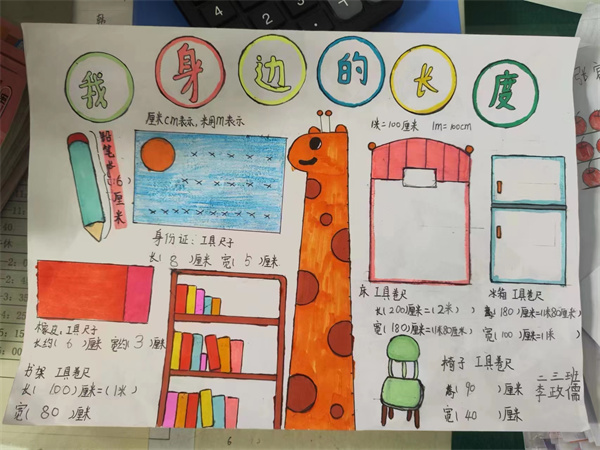 我身边的长度
厘米cm表示,米用m表示
1米=100厘米 1m=100cm
铅笔长(16)厘米
身份证:工具尺子
长(8)厘米 宽(5)厘米
橡皮:工具尺子
长约(6)厘米 宽约(3)厘米
书架 工具卷尺
长(100)厘米=(1米)
宽(80)厘米
床 工具卷尺
长(200)厘米=(2米)
宽(180)厘米=(1米80厘米)
冰箱 工具卷尺
高(180)厘米=(1米80厘米)
宽(100)厘米=(1米)
椅子 工具卷尺
高(90)厘米
宽(40)厘米
二三班
李政儒